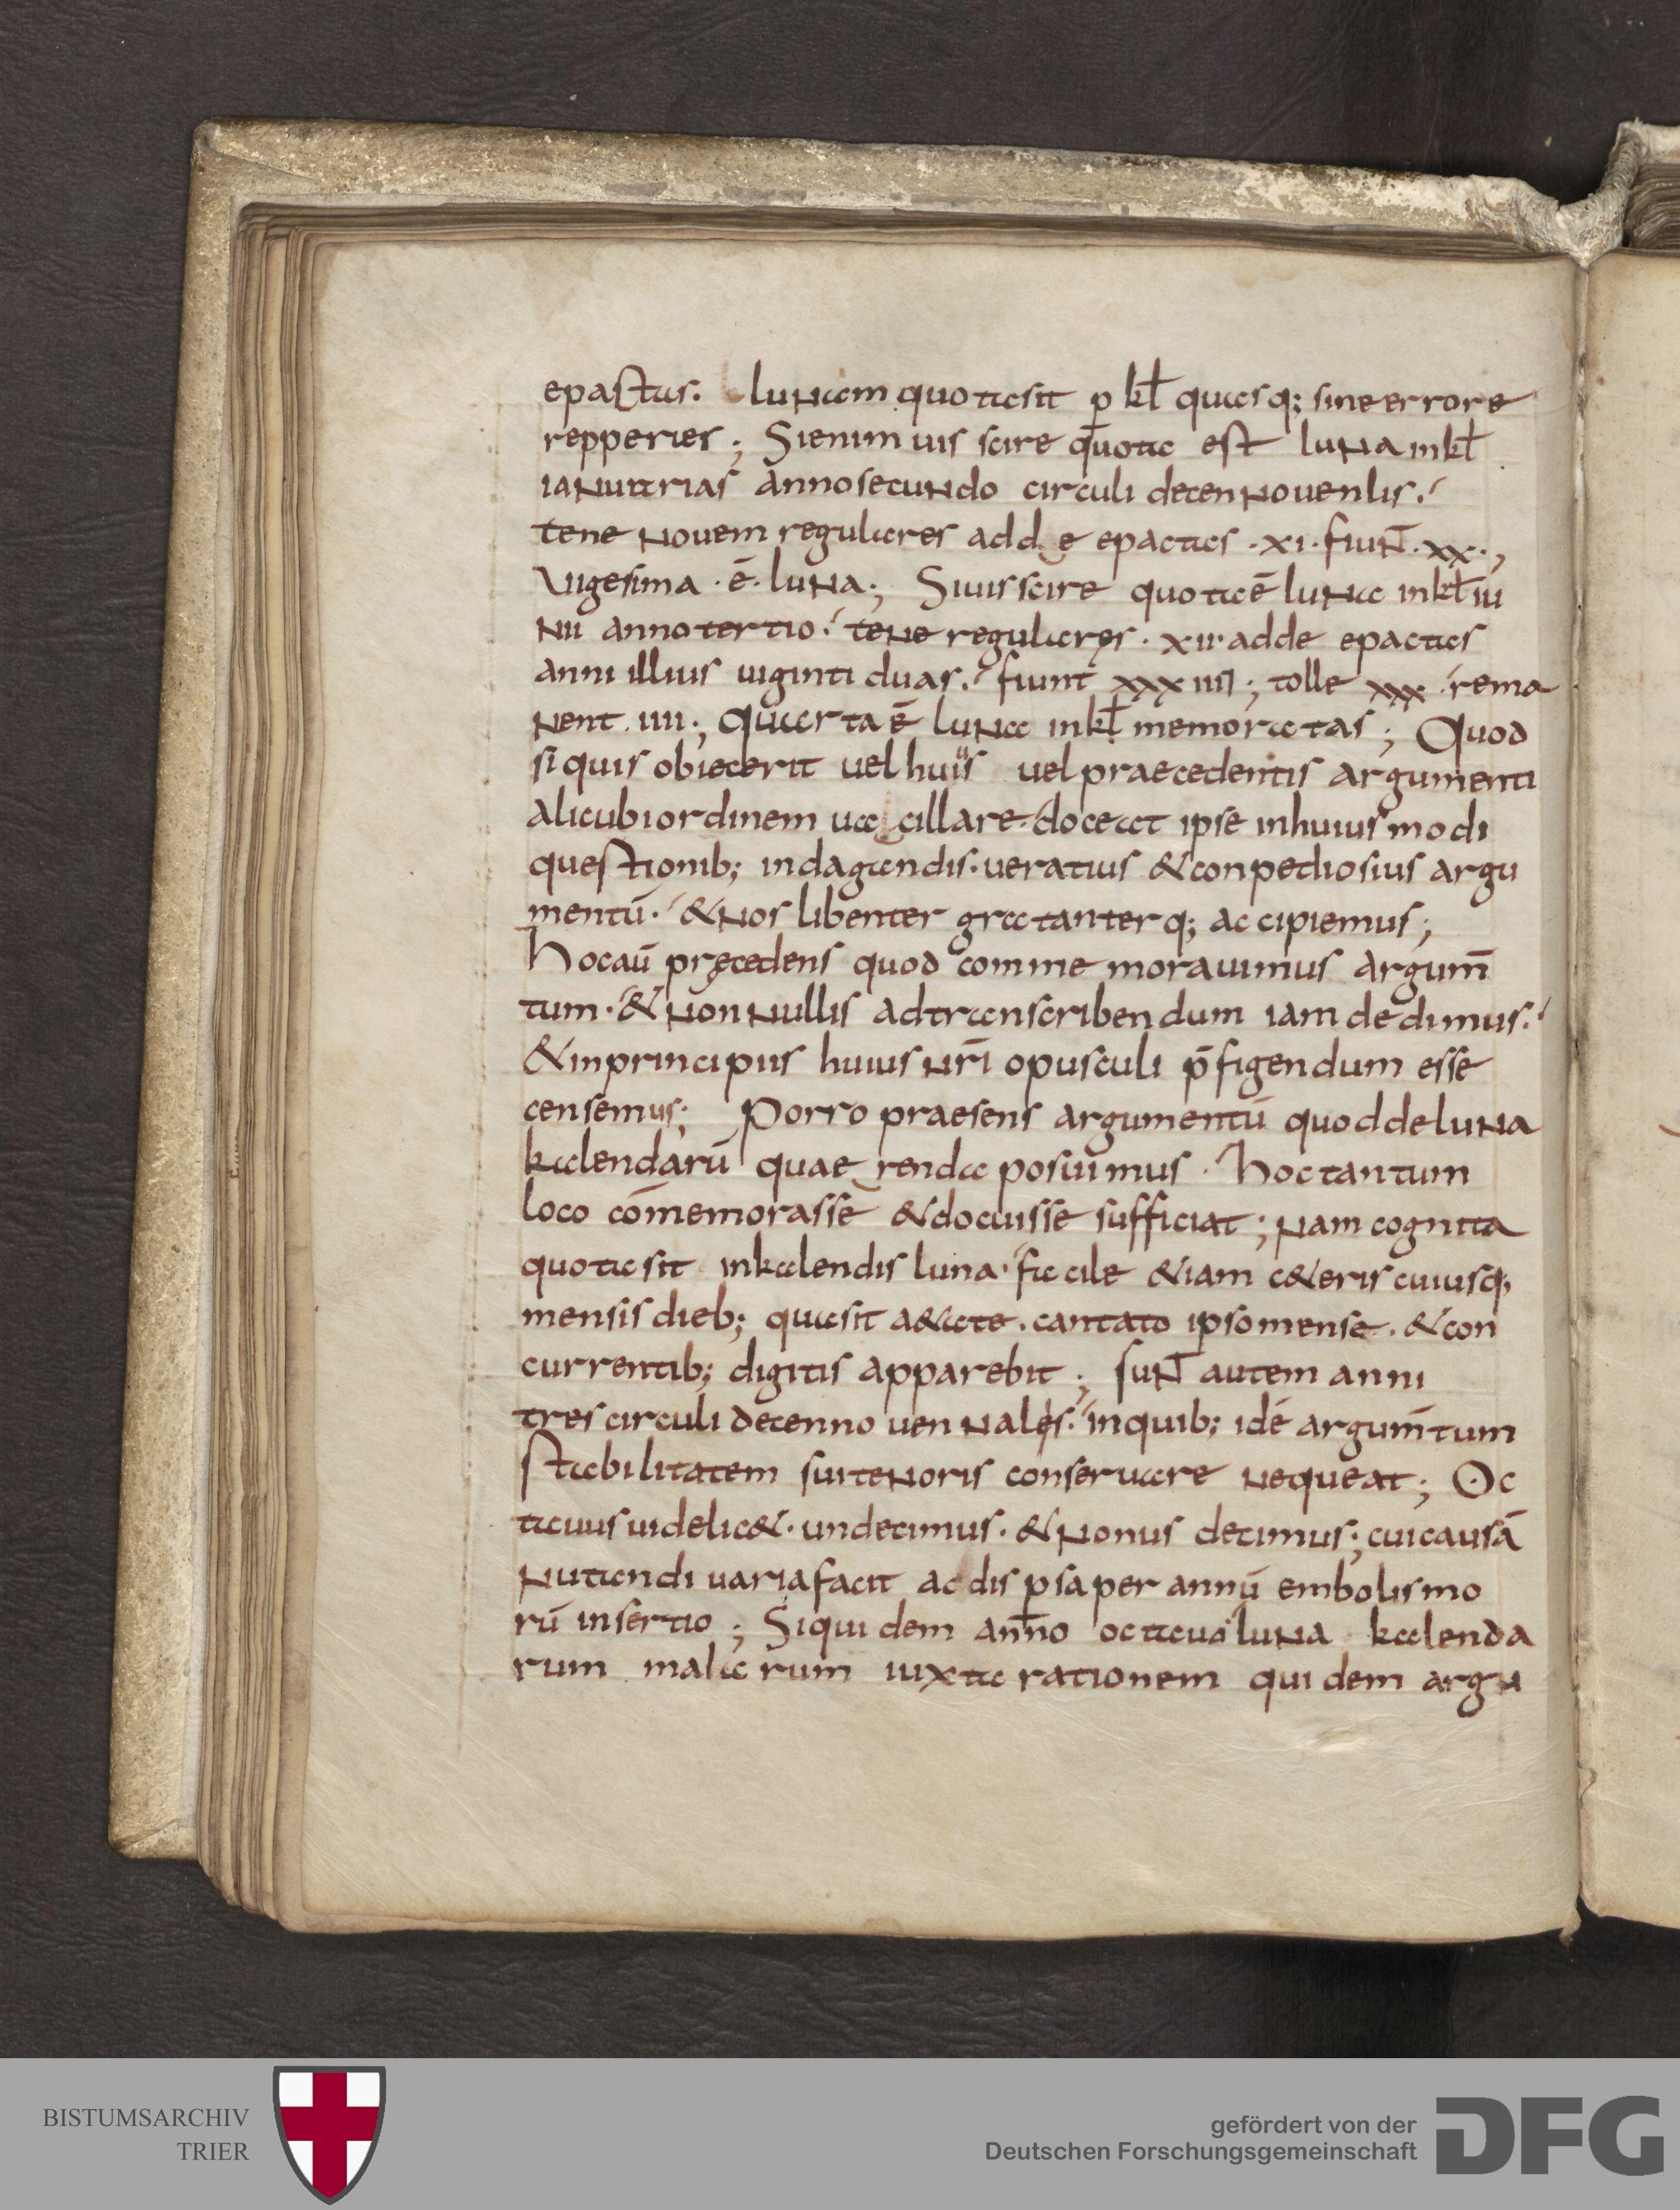 epactas. lunam quota sit p kł quasq; sine errore
repperies; Si enim uis scire quota est luna in kł
ianuarias anno secundo circuli decennouenlis.
tene nouem regulares adde epactas .xi. fiunt .xx.,
Uigesima .ē. luna; Si uis scire quota ē luna in kł iu
nii anno tertio. tene regulares .xii. adde epactas
anni illius uiginti duas. fiunt xxxiiii; tolle xxx rema
nent .iiii; quarta ē luna in kł memoratas; Quod
si quis obiecerit uel huius uel praecedentis argumenti
alicubi ordinem uacillare. doceat ipse in huiusmodi
questionib; indagandis. ueratius & conpediosius argu
mentū. & nos libenter gratanterq; accipiemus;
hoc aū pręcedens quod commemorauimus argum̄
tum. & nonnullis ad transcribendum iam dedimus.
& in principiis huius nr̄i opusculi p̄figendum esse
censemus; Porro praesens argumentū quod de luna
kalendarū quaerenda posuimus. hoc tantum
loco cōmemorasse & docuisse sufficiat; nam cognita
quota sit in kalendis luna. facile &iam c&eris cuiusq;
mensis dieb; quasit a&ate. cantato ipso mense. & con
currentib; digitis apparebit; sunt autem anni
tres circuli decennouennales. in quib; idē argum̄tum
stabilitatem sui tenoris conseruare nequeat; Oc
tauus uidelic&. undecimus. & nonus decimus; cui causā
nutandi uaria facit ac dispsa per annū embolismo
rū insertio; Siquidem anno octauo luna kalenda
rum malarum iuxta rationem quidem argu
BISTUMSARCHIV
TRIER
gefördert von der
Deutschen Forschungsgemeinschaft
DFG